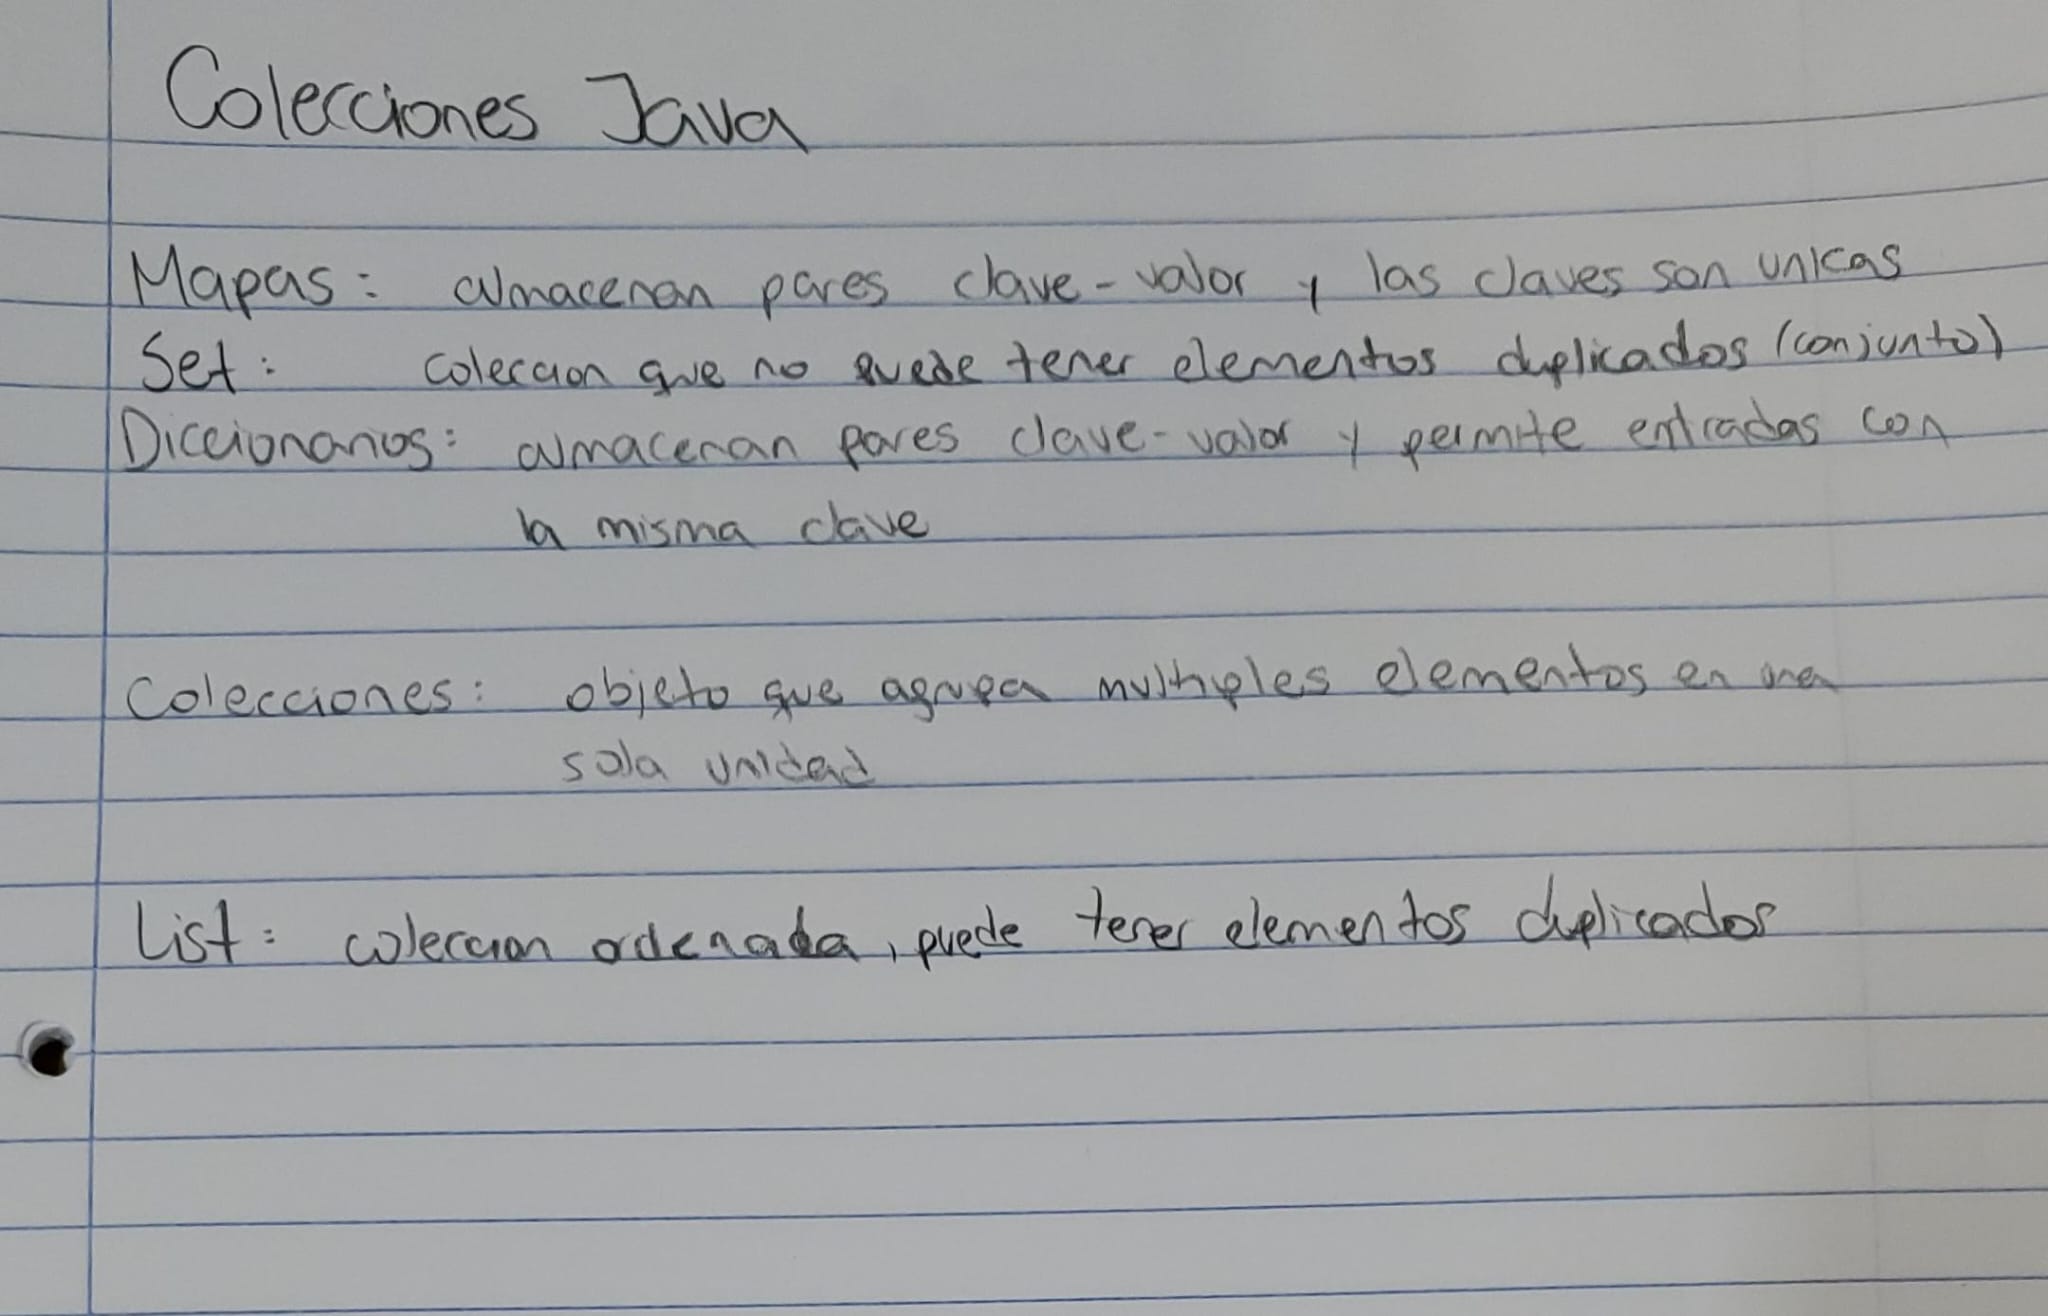 Colecciones Java
Mapas: almacenan pares clave-valor y las claves son unicas
Set: coleccion que no puede tener elementos duplicados (conjunto)
Diccionarios: almacenan pares clave-valor y permite entradas con
la misma clave
Colecciones: objeto que agrupa multiples elementos en una
sola unidad
List: coleccion ordenada, puede tener elementos duplicados